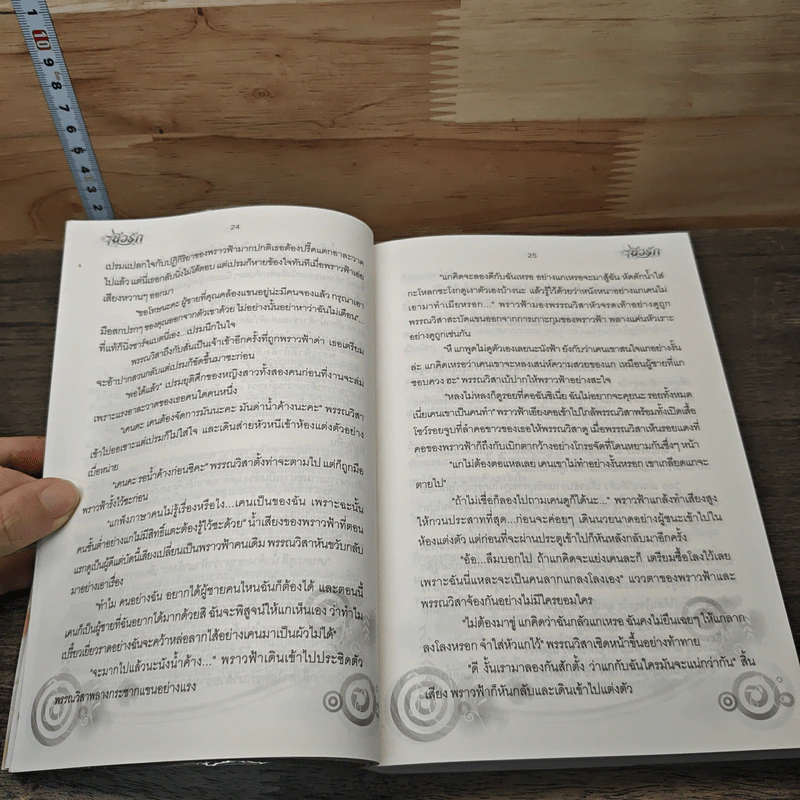 1
10
9
8
7
6
5
4
3
2
24
เปรมแปลกใจกับปฏิกิริยาของพราวฟ้ามากปกติเธอต้องปรี๊ดแตกอาละวาด
ไปแล้ว แต่นี่เธอกลับนิ่งไม่โต้ตอบ แต่เปรมก็หายข้องใจทันทีเมื่อพราวฟ้าเอ่ย
เสียงหวานๆ ออกมา
"ขอโทษนะคะ ผู้ชายที่คุณคล้องแขนอยู่น่ะมีคนจองแล้ว กรุณาเอา
มือสกปรกๆ ของคุณออกจากตัวเขาด้วย ไม่อย่างนั้นอย่าหาว่าฉันไม่เตือน"...
ที่แท้ก็นิ่งชาร์จแบตนี่เอง...เปรมนึกในใจ
พรรณวิสาถึงกับสั่นเป็นเจ้าเข้าอีกครั้งที่ถูกพราวฟ้าด่า เธอเตรียม
จะอ้าปากสวนกลับแต่เปรมก็ขัดขึ้นมาซะก่อน
"พอได้แล้ว" เปรมยุติศึกของหญิงสาวทั้งสองคนก่อนที่งานจะล่ม
เพราะแรงอาละวาดของเธอคนใดคนหนึ่ง
"เคนคะ เคนต้องจัดการมันนะคะ มันด่าน้ำค้างนะคะ" พรรณวิสา
เข้าไปออเซาะแต่เปรมก็ไม่ใส่ใจ และเดินส่ายหัวหนีเข้าห้องแต่งตัวอย่าง
เบื่อหน่าย
"เคนคะ รอน้ำค้างก่อนซิคะ" พรรณวิสาตั้งท่าจะตามไป แต่ก็ถูกมือ
พราวฟ้ารั้งไว้ซะก่อน
"แกฟังภาษาคนไม่รู้เรื่องหรือไง...เคนเป็นของฉัน เพราะฉะนั้น
คนชั้นต่ำอย่างแกไม่มีสิทธิ์แตะต้องรู้ไว้ซะด้วย" น้ำเสียงของพราวฟ้าที่ตอน
แรกดูเป็นผู้ดีแต่บัดนี้เสียงเปลี่ยนเป็นพราวฟ้าคนเดิม พรรณวิสาหันขวับกลับ
มาอย่างเอาเรื่อง
"ทำไม คนอย่างฉัน อยากได้ผู้ชายคนไหนฉันก็ต้องได้ และตอนนี้
เคนก็เป็นผู้ชายที่ฉันอยากได้มากด้วยสิ ฉันจะพิสูจน์ให้แกเห็นเอง ว่าทำไม
เปรี้ยวเยี่ยวราดอย่างฉันจะคว้าหล่อลากไส้อย่างเคนมาเป็นผัวไม่ได้"
"จะมากไปแล้วนะนังน้ำค้าง..." พราวฟ้าเดินเข้าไปประชิดตัว
พรรณวิสาพลางกระชากแขนอย่างแรง
25
"แกคิดจะลองดีกับฉันเหรอ อย่างแกเหรอจะมาสู้ฉัน หัดตักน้ำใส่
กะโหลกชะโงกดูเงาตัวเองบ้างนะ แล้วรู้ไว้ด้วยว่าหนังหนาอย่างแกเคนไม่
เอามาทำเมียหรอก..." พราวฟ้ามองพรรณวิสาหัวจรดเท้าอย่างดูถูก
พรรณวิสาสะบัดแขนออกจากการเกาะกุมของพราวฟ้า พลางแค่นหัวเราะ
อย่างดูถูกเช่นกัน
"หึ แกพูดไม่ดูตัวเองเลยนะนังฟ้า ยังกับว่าเคนเขาสนใจแกอย่างงั้น
ล่ะ แกคิดเหรอว่าเคนเขาจะหลงเสน่ห์ความสวยของแก เหมือนผู้ชายที่แก
ชอบควง ฮะ" พรรณวิสาเบ้ปากให้พราวฟ้าอย่างสะใจ
"หลงไม่หลงก็ดูรอยที่คอฉันซิเนี่ย ฉันไม่อยากจะคุยนะ รอยทั้งหมด
เนี่ยเคนเขาเป็นคนทำ" พราวฟ้าเอียงคอเข้าไปใกล้พรรณวิสาพร้อมทั้งเปิดเสื้อ
โชว์รอยจูบที่ลำคอขาวของเธอให้พรรณวิสาดู เมื่อพรรณวิสาเห็นรอยแดงที่
คอของพราวฟ้าก็ถึงกับเบิกตากว้างอย่างโกรธจัดที่โดนหยามกันซึ่งๆ หน้า
"แกไม่ต้องตอแหลเลย เคนเขาไม่ทำอย่างงั้นหรอก เขาเกลียดแกจะ
ตายไป"
"ถ้าไม่เชื่อก็ลองไปถามเคนดูก็ได้นะ..." พราวฟ้าแกล้งทำเสียงสูง
ให้กวนประสาทที่สุด...ก่อนจะค่อยๆ เดินนวยนาดอย่างผู้ชนะเข้าไปใน
ห้องแต่งตัว แต่ก่อนที่จะผ่านประตูเข้าไปก็หันหลังกลับมาอีกครั้ง
"อ้อ...ลืมบอกไป ถ้าแกคิดจะแย่งเคนละก็ เตรียมซื้อโลงไว้เลย
เพราะฉันนี่แหละจะเป็นคนลากแกลงโลงเอง" แววตาของพราวฟ้าและ
พรรณวิสาจ้องกันอย่างไม่มีใครยอมใคร
"ไม่ต้องมาขู่ แกคิดว่าฉันกลัวแกเหรอ ฉันคงไม่ยืนเฉยๆ ให้แกลาก
ลงโลงหรอก จำใส่หัวแกไว้" พรรณวิสาเชิดหน้าขึ้นอย่างท้าทาย
"ดี งั้นเรามาลองกันสักตั้ง ว่าแกกับฉันใครมันจะแน่กว่ากัน" สิ้น
เสียง พราวฟ้าก็หันกลับและเดินเข้าไปแต่งตัว